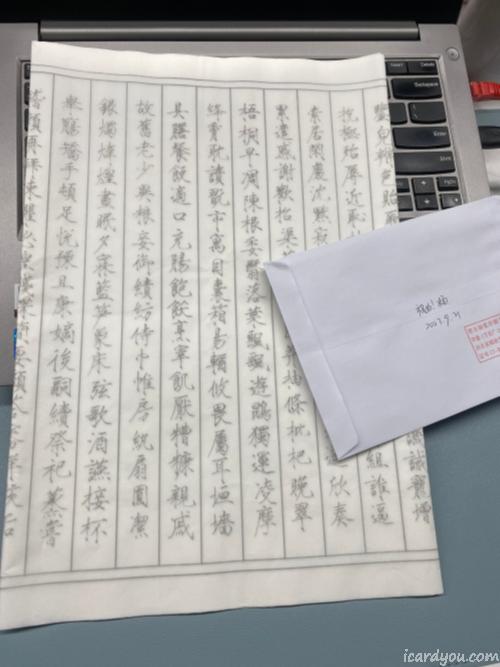 鑒皃辨色貽厥 誡寵增
抗極殆辱近恥 組誰逼
索居閑處沈默寂 欣奏
累遣慼謝歡招渠 抽條枇杷晚翠
梧桐早凋陳根委翳落葉飄颻遊鵾獨運凌摩
絳霄耽讀翫市寓目囊箱易輶攸畏屬耳垣墻
具膳餐飯適口充腸飽飫烹宰飢厭糟糠親戚
故舊老少異粮妾御績紡侍巾帷房紈扇圓潔
銀燭煒煌晝眠夕寐藍笋象床弦歌酒讌接杯
舉觴矯手頓足悅豫且康嫡後嗣續祭祀蒸嘗
稽顙再拜悚懼恐 要顧答審
2023.9.21
Backspace
Enter
Shift
icardyou.com